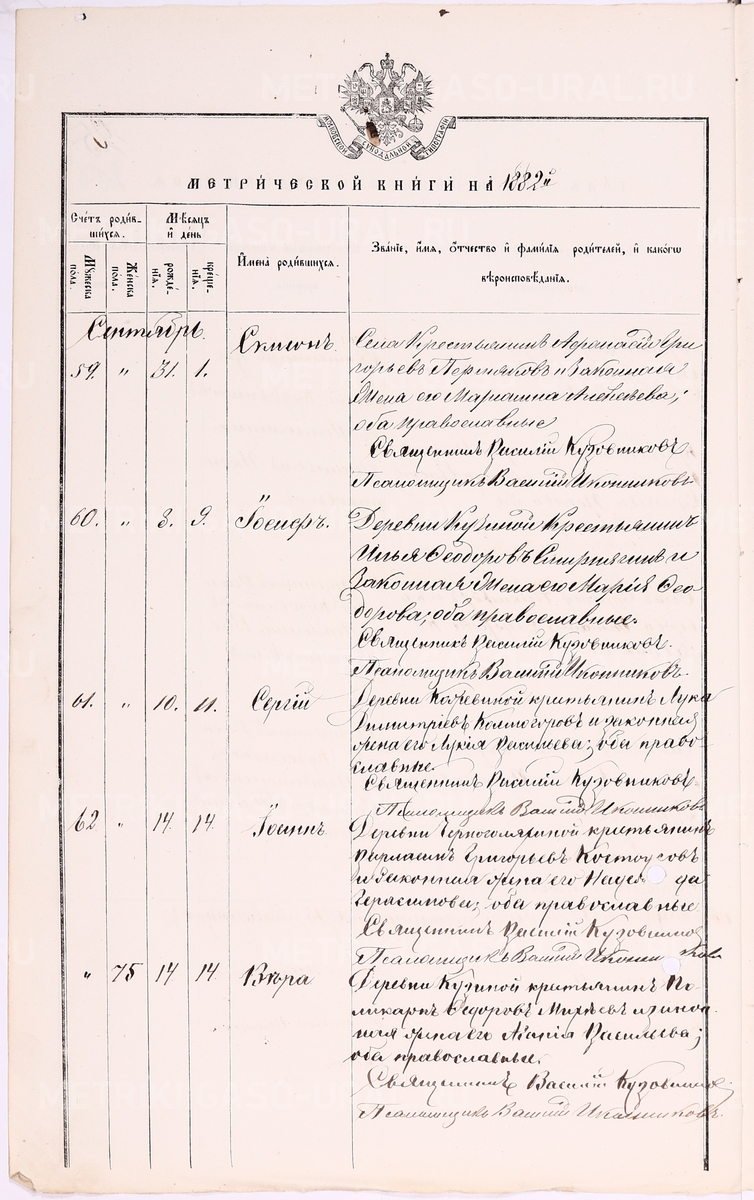 МОСКОВСКОЙ СѴНОДАЛЬНОЙ ТИПОГРАФІИ
МЕТРИ́ЧЕСКОЙ КНИ́ГИ НА̀ 1882й
Сче́тъ роди́в-
шихся.
Мѣ́сяцъ
и҆ де́нь
И҆мена̀ роди́вшихся.
Зва́нїе, и҆́мя, ѻ҆́тчество и҆ фами́лїа роди́телей, и҆ како́гѡ
вѣроисповѣ́данїя.
Мꙋ́жеска
пола.
Же́нска
пола.
рожде́-
нїя.
креще́-
нїя.
Сентябрь.
59. " 31. 1. Симеонъ
Села Крестьянинъ Афанасій Гри
горьевъ и Законная
Жена его Маріанна Алексѣева;
оба православные
Священникъ Василій Кузовниковъ.
Псаломщикъ Василій Иконниковъ
60. " 8. 9. Іосифъ.
Деревни Кузиной Крестьянинъ
Илья Ѳеодоровъ Смирнягинъ и
Законная Жена его Марія Ѳео-
дорова; оба православные.
Священникъ Василій Кузовниковъ.
Псаломщикъ Василій Иконниковъ.
61. " 10. 11. Сергій
Деревни Кожевиной крестьянинъ Лука
Димитріевъ Колмогоровъ и законная
жена его Лукія Васильева; оба право-
славные.
Священникъ Василій Кузовниковъ
Псаломщикъ Василій Иконниковъ
62 " 14. 14. Іоаннъ
Деревни Черноголяшиной крестьянинъ
Варлаамъ Григорьевъ Костоусовъ
и законная жена его Надеж да
Герасимова; оба православные
Священникъ Василій Кузовников
Псаломщикъ Василій Иконни ковъ
" 75 14 14 Вѣра
Деревни Кузиной крестьянинъ По
ликарпъ Ѳедоровъ Михѣевъ и закон
ная жена его Агаѳія Васильева;
оба православные.
Священникъ Василій Кузовников
Псаломщикъ Василій Иконниковъ.